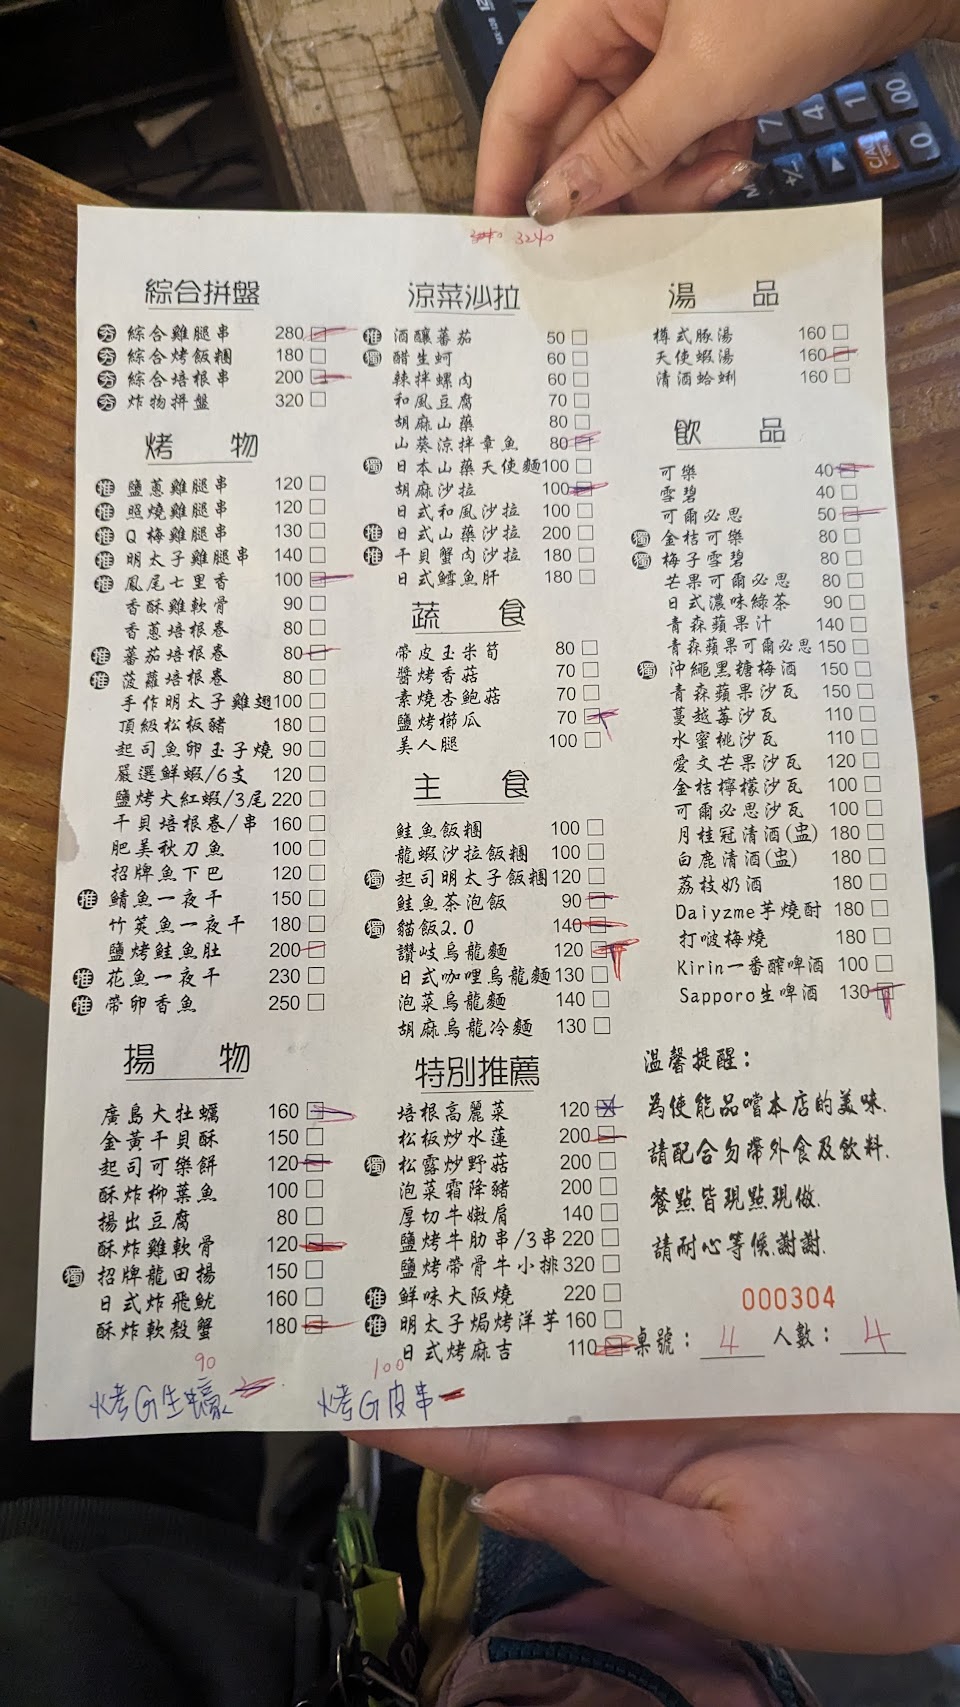 3240
綜合拼盤
夯 綜合雞腿串 280
夯 綜合烤飯糰 180
夯 綜合培根串 200
夯 炸物拼盤 320
烤 物
推 鹽蔥雞腿串 120
推 照燒雞腿串 120
推 Q梅雞腿串 130
推 明太子雞腿串 140
推 鳳尾七里香 100
香酥雞軟骨 90
香蔥培根卷 80
推 蕃茄培根卷 80
推 菠蘿培根卷 80
手作明太子雞翅100
頂級松板豬 180
起司魚卵玉子燒 90
嚴選鮮蝦/6支 120
鹽烤大紅蝦/3尾 220
干貝培根卷/串 160
肥美秋刀魚 100
招牌魚下巴 120
推 鯖魚一夜干 150
竹筴魚一夜干 180
鹽烤鮭魚肚 200
推 花魚一夜干 230
推 帶卵香魚 250
揚 物
廣島大牡蠣 160
金黃干貝酥 150
起司可樂餅 120
酥炸柳葉魚 100
揚出豆腐 80
酥炸雞軟骨 120
獨 招牌龍田揚 150
日式炸飛魷 160
酥炸軟殼蟹 180
90
烤G生蠔
涼菜沙拉
推 酒釀蕃茄 50
獨 醋生蚵 60
辣拌螺肉 60
和風豆腐 70
胡麻山藥 80
山葵涼拌章魚 80
獨 日本山藥天使麵100
胡麻沙拉 100
日式和風沙拉 100
推 日式山藥沙拉 200
推 干貝蟹肉沙拉 180
日式鱈魚肝 180
蔬 食
帶皮玉米筍 80
醬烤香菇 70
素燒杏鮑菇 70
鹽烤櫛瓜 70
美人腿 100
主 食
鮭魚飯糰 100
龍蝦沙拉飯糰 100
獨 起司明太子飯糰 120
鮭魚茶泡飯 90
獨 貓飯2.0 140
讚岐烏龍麵 120
日式咖哩烏龍麵 130
泡菜烏龍麵 140
胡麻烏龍冷麵 130
特別推薦
培根高麗菜 120
松板炒水蓮 200
獨 松露炒野菇 200
泡菜霜降豬 200
厚切牛嫩肩 140
鹽烤牛肋串/3串 220
鹽烤帶骨牛小排 320
推 鮮味大阪燒 220
推 明太子焗烤洋芋 160
日式烤麻吉 110
100
烤G皮串
湯 品
樽式豚湯 160
天使蝦湯 160
清酒蛤蜊 160
飲 品
可樂 40
雪碧 40
可爾必思 50
獨 金桔可樂 80
獨 梅子雪碧 80
芒果可爾必思 80
日式濃味綠茶 90
青森蘋果汁 140
青森蘋果可爾必思 150
獨 沖繩黑糖梅酒 150
青森蘋果沙瓦 150
蔓越莓沙瓦 110
水蜜桃沙瓦 110
愛文芒果沙瓦 120
金桔檸檬沙瓦 100
可爾必思沙瓦 100
月桂冠清酒(盅) 180
白鹿清酒(盅) 180
荔枝奶酒 180
Daiyzme芋燒酎 180
打啵梅燒 180
Kirin一番醡啤酒 100
Sapporo生啤酒 130
溫馨提醒：
為使能品嚐本店的美味.
請配合勿帶外食及飲料.
餐點皆現點現做.
請耐心等候.謝謝.
000304
桌號： 4 人數： 4
MX-12B
7 4 1 00
0